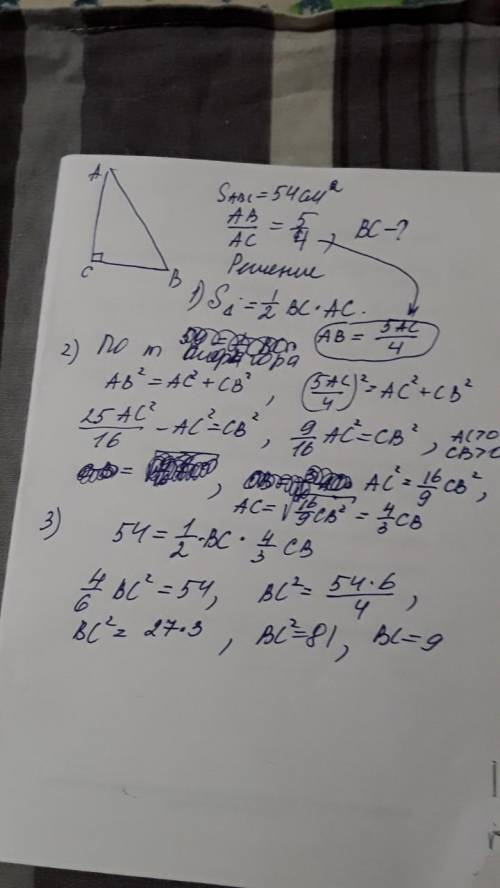 A
C
B
S_ABC = 54 см²
AB/AC = 5/4, BC - ?
Решение
1) S_Δ = 1/2 BC · AC.
AB = 5AC/4
2) По т Пифагора
AB² = AC² + CB², (5AC/4)² = AC² + CB²
25AC²/16 - AC² = CB², 9/16 AC² = CB², AC>0
CB>0
AC² = 16/9 CB²,
AC = √(16/9 CB²) = 4/3 CB
3) 54 = 1/2 · BC · 4/3 CB
4/6 BC² = 54, BC² = 54·6/4,
BC² = 27·3, BC² = 81, BC = 9